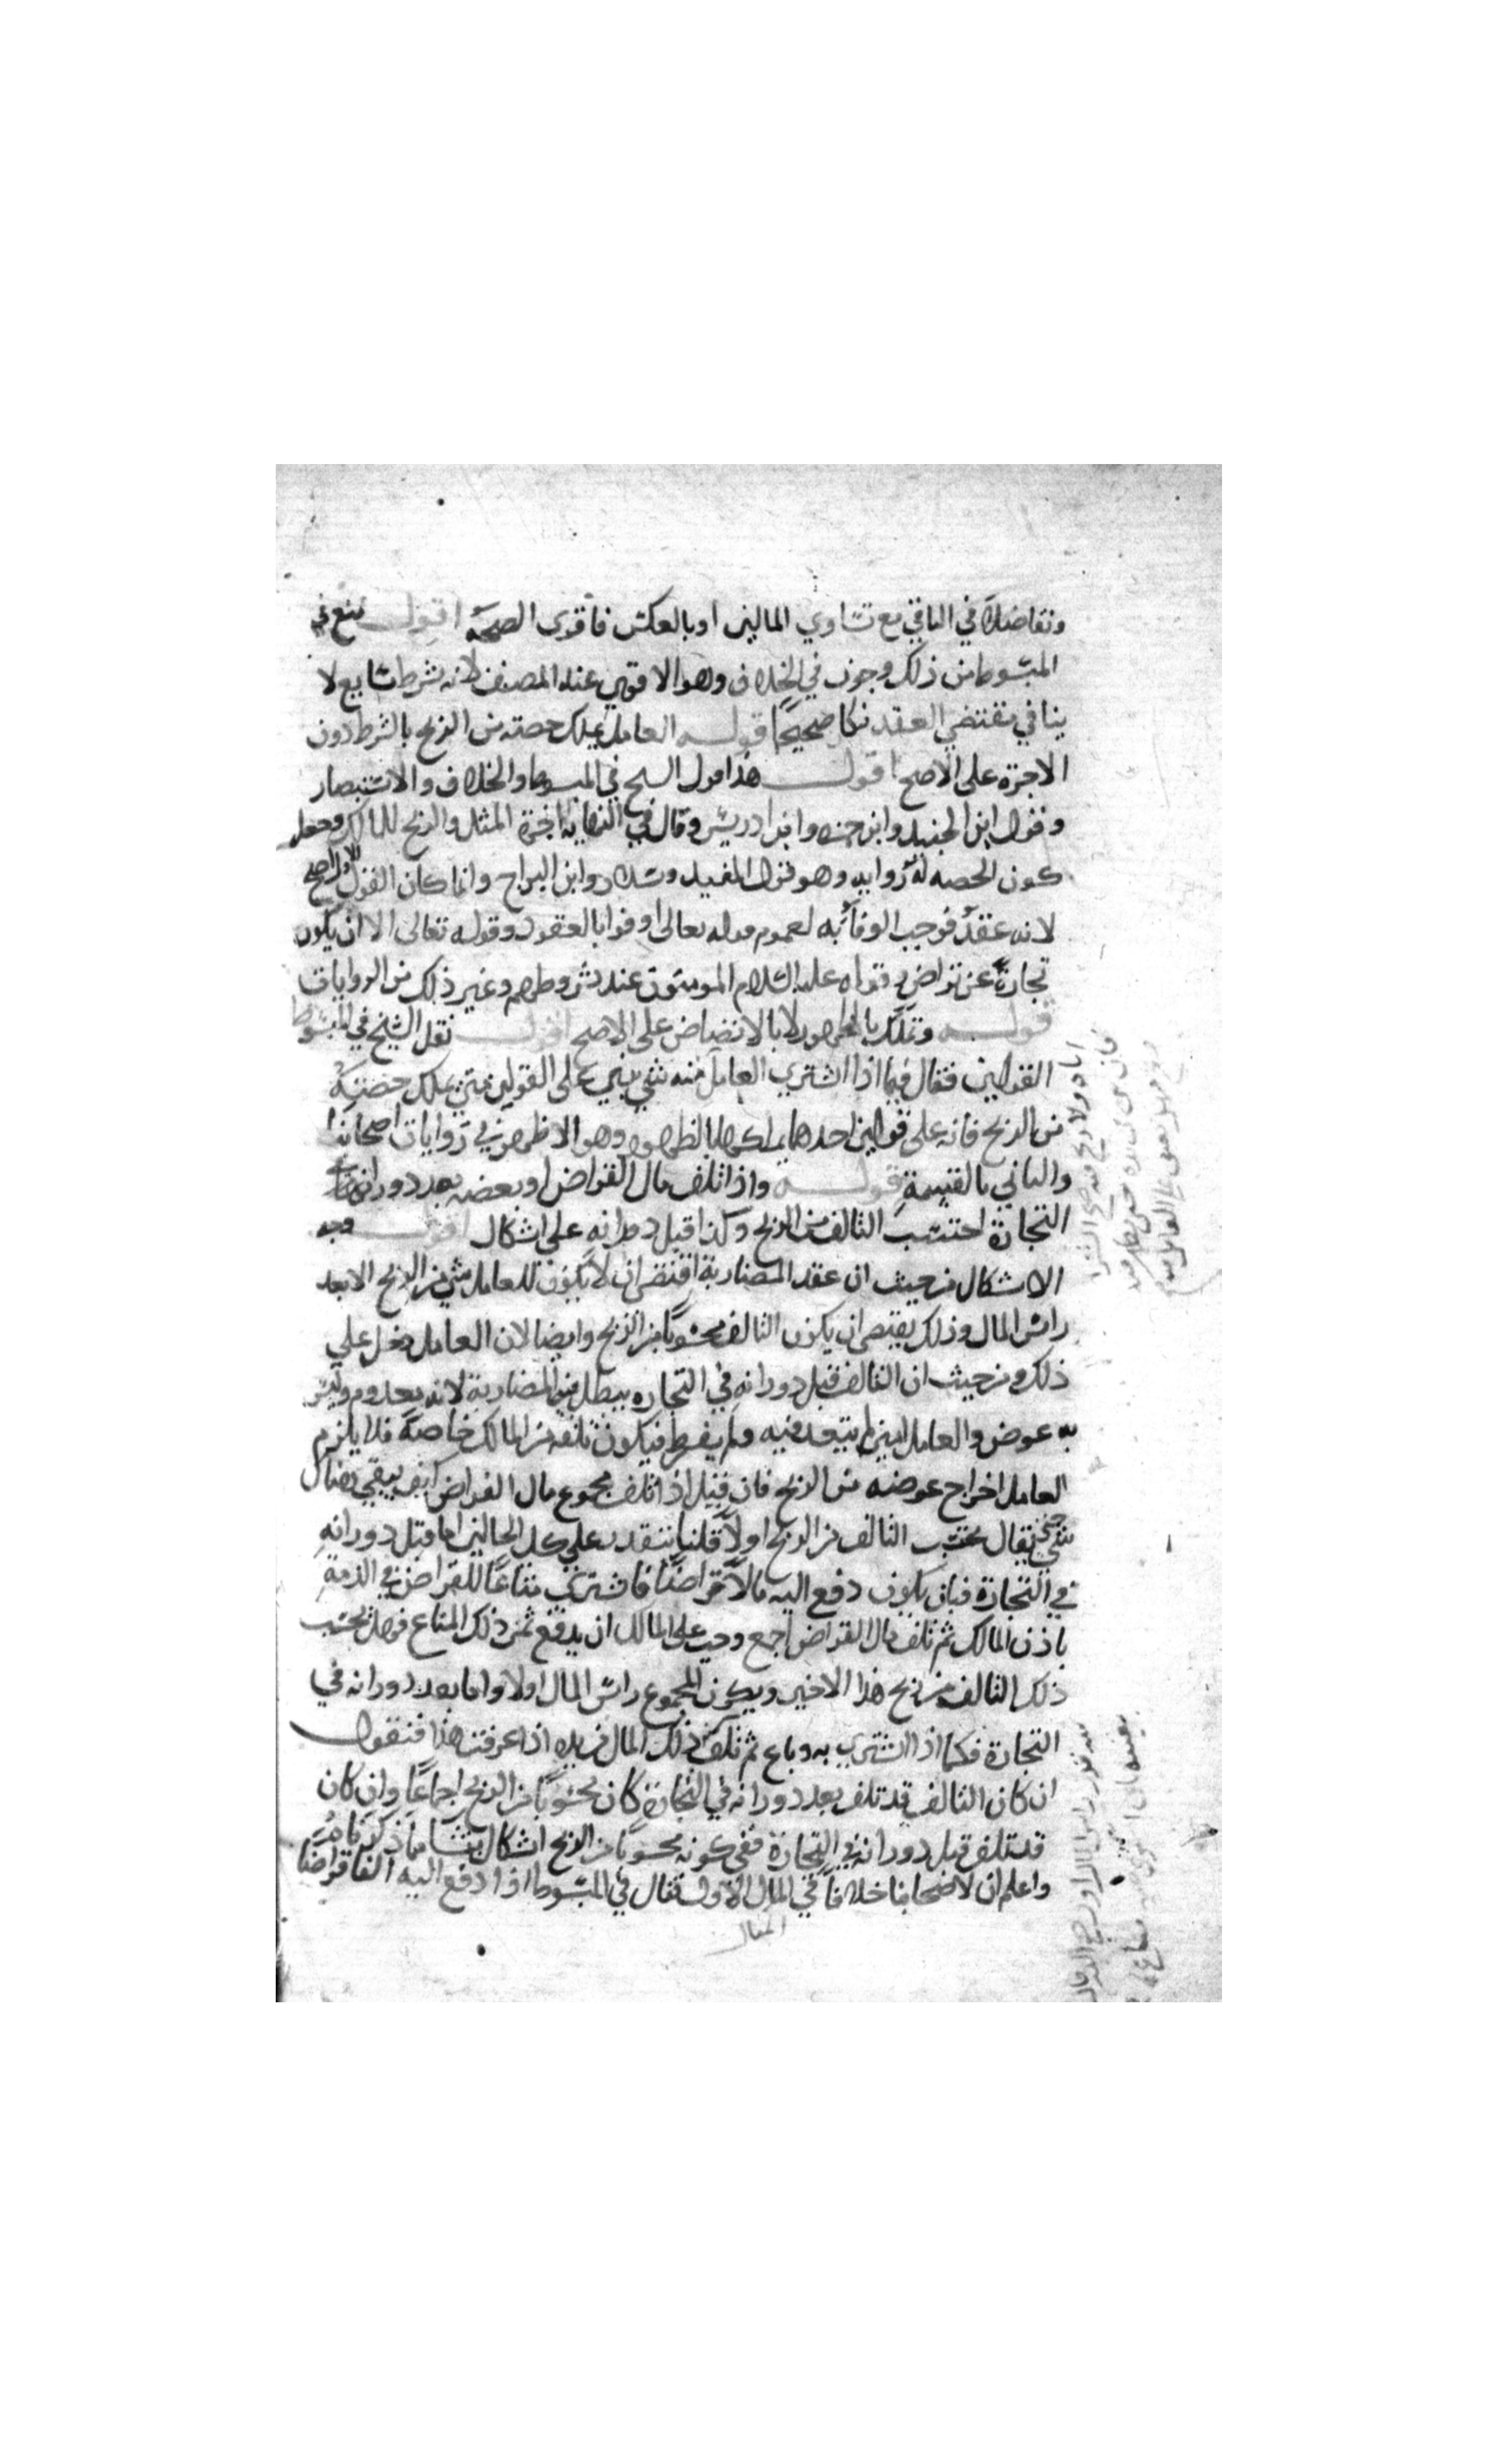 وتفاضلا في الباقي مع تساوي المالين او بالعكس فاقوى الصحة اقول منع في
المبسوط من ذلك وجوزه في الخلاف وهو الاقوى عند المصنف لانه شرط سايع لا
ينافي مقتضي العقد فكان صحيحا قوله العامل يملك حصته من الربح بالشرط دون
الاجرة على الاصح اقول هذا قول الشيخ في المبسوط والخلاف والاستبصار
وقول ابن الجنيد وابن حمزه وابن ادريس وقال في النهاية له اجرة المثل والربح للمالك وجعل
كون الحصه له رواية وهو قول المفيد وسلار وابن البراج وانما كان القول الاول اصح
لانه عقد فوجب الوفاء به لعموم قوله تعالى اوفوا بالعقود وقوله تعالى الا ان يكون
تجارة عن تراض وقوله عليه السلام المومنون عند شروطهم وغير ذلك من الروايات
قوله وتملك بالظهور لا بالانضاض على الاصح اقول نقل الشيخ في المبسوط
القولين فقال فيما اذا اشترى العامل منه شي يبني على القولين متى يملك حصته
من الربح فانه على قولين احدهما يملكها بالظهور وهو الاظهر في روايات اصحابنا
والثاني بالقسمة قوله واذا تلف مال القراض او بعضه بعد دورانه في
التجارة احتسب التالف من الربح وكذا قبل دورانه على اشكال اقول وجه
الاشكال من حيث ان عقد المضاربة اقتضى ان لا يكون للعامل شي من الربح الا بعد
راس المال وذلك يقتضي ان يكون التالف محسوبا من الربح وايضا لان العامل دخل على
ذلك ومن حيث ان التالف قبل دورانه في التجاره يبطل فيه المضاربة لانه معدوم وليس
به عوض والعامل امين لم يتعد فيه ولم يفرط فيكون تلفه من المالك خاصة فلا يلزم
العامل اخراج عوضه من الربح فان قيل اذا تلف مجموع مال القراض كيف يبقي هناك
شي حتى يقال يحتسب التالف من الربح اولا قلنا يتقدر على كل الحالين اما قبل دورانه
في التجارة فبان يكون دفع اليه مالا قراضا فاشترى متاعا للقراض في الذمة
باذن المالك ثم تلف مال القراض اجمع وجب على المالك ان يدفع ثمن ذلك المتاع فهل يحتسب
ذلك التالف من ربح هذا الاخير ويكون المجموع راس المال اولا واما بعد دورانه في
التجارة فكما اذا اشترى به وباع ثم تلف ذلك المال في يده اذا عرفت هذا فنقول
ان كان التالف قد تلف بعد دورانه في التجارة كان محسوبا من الربح اجماعا وان كان
قد تلف قبل دورانه في التجارة ففي كونه محسوبا من الربح اشكال ينشا مما ذكرناه
واعلم ان لاصحابنا خلافا في المال الاول فقال في المبسوط اذا دفع اليه الفا قراضا